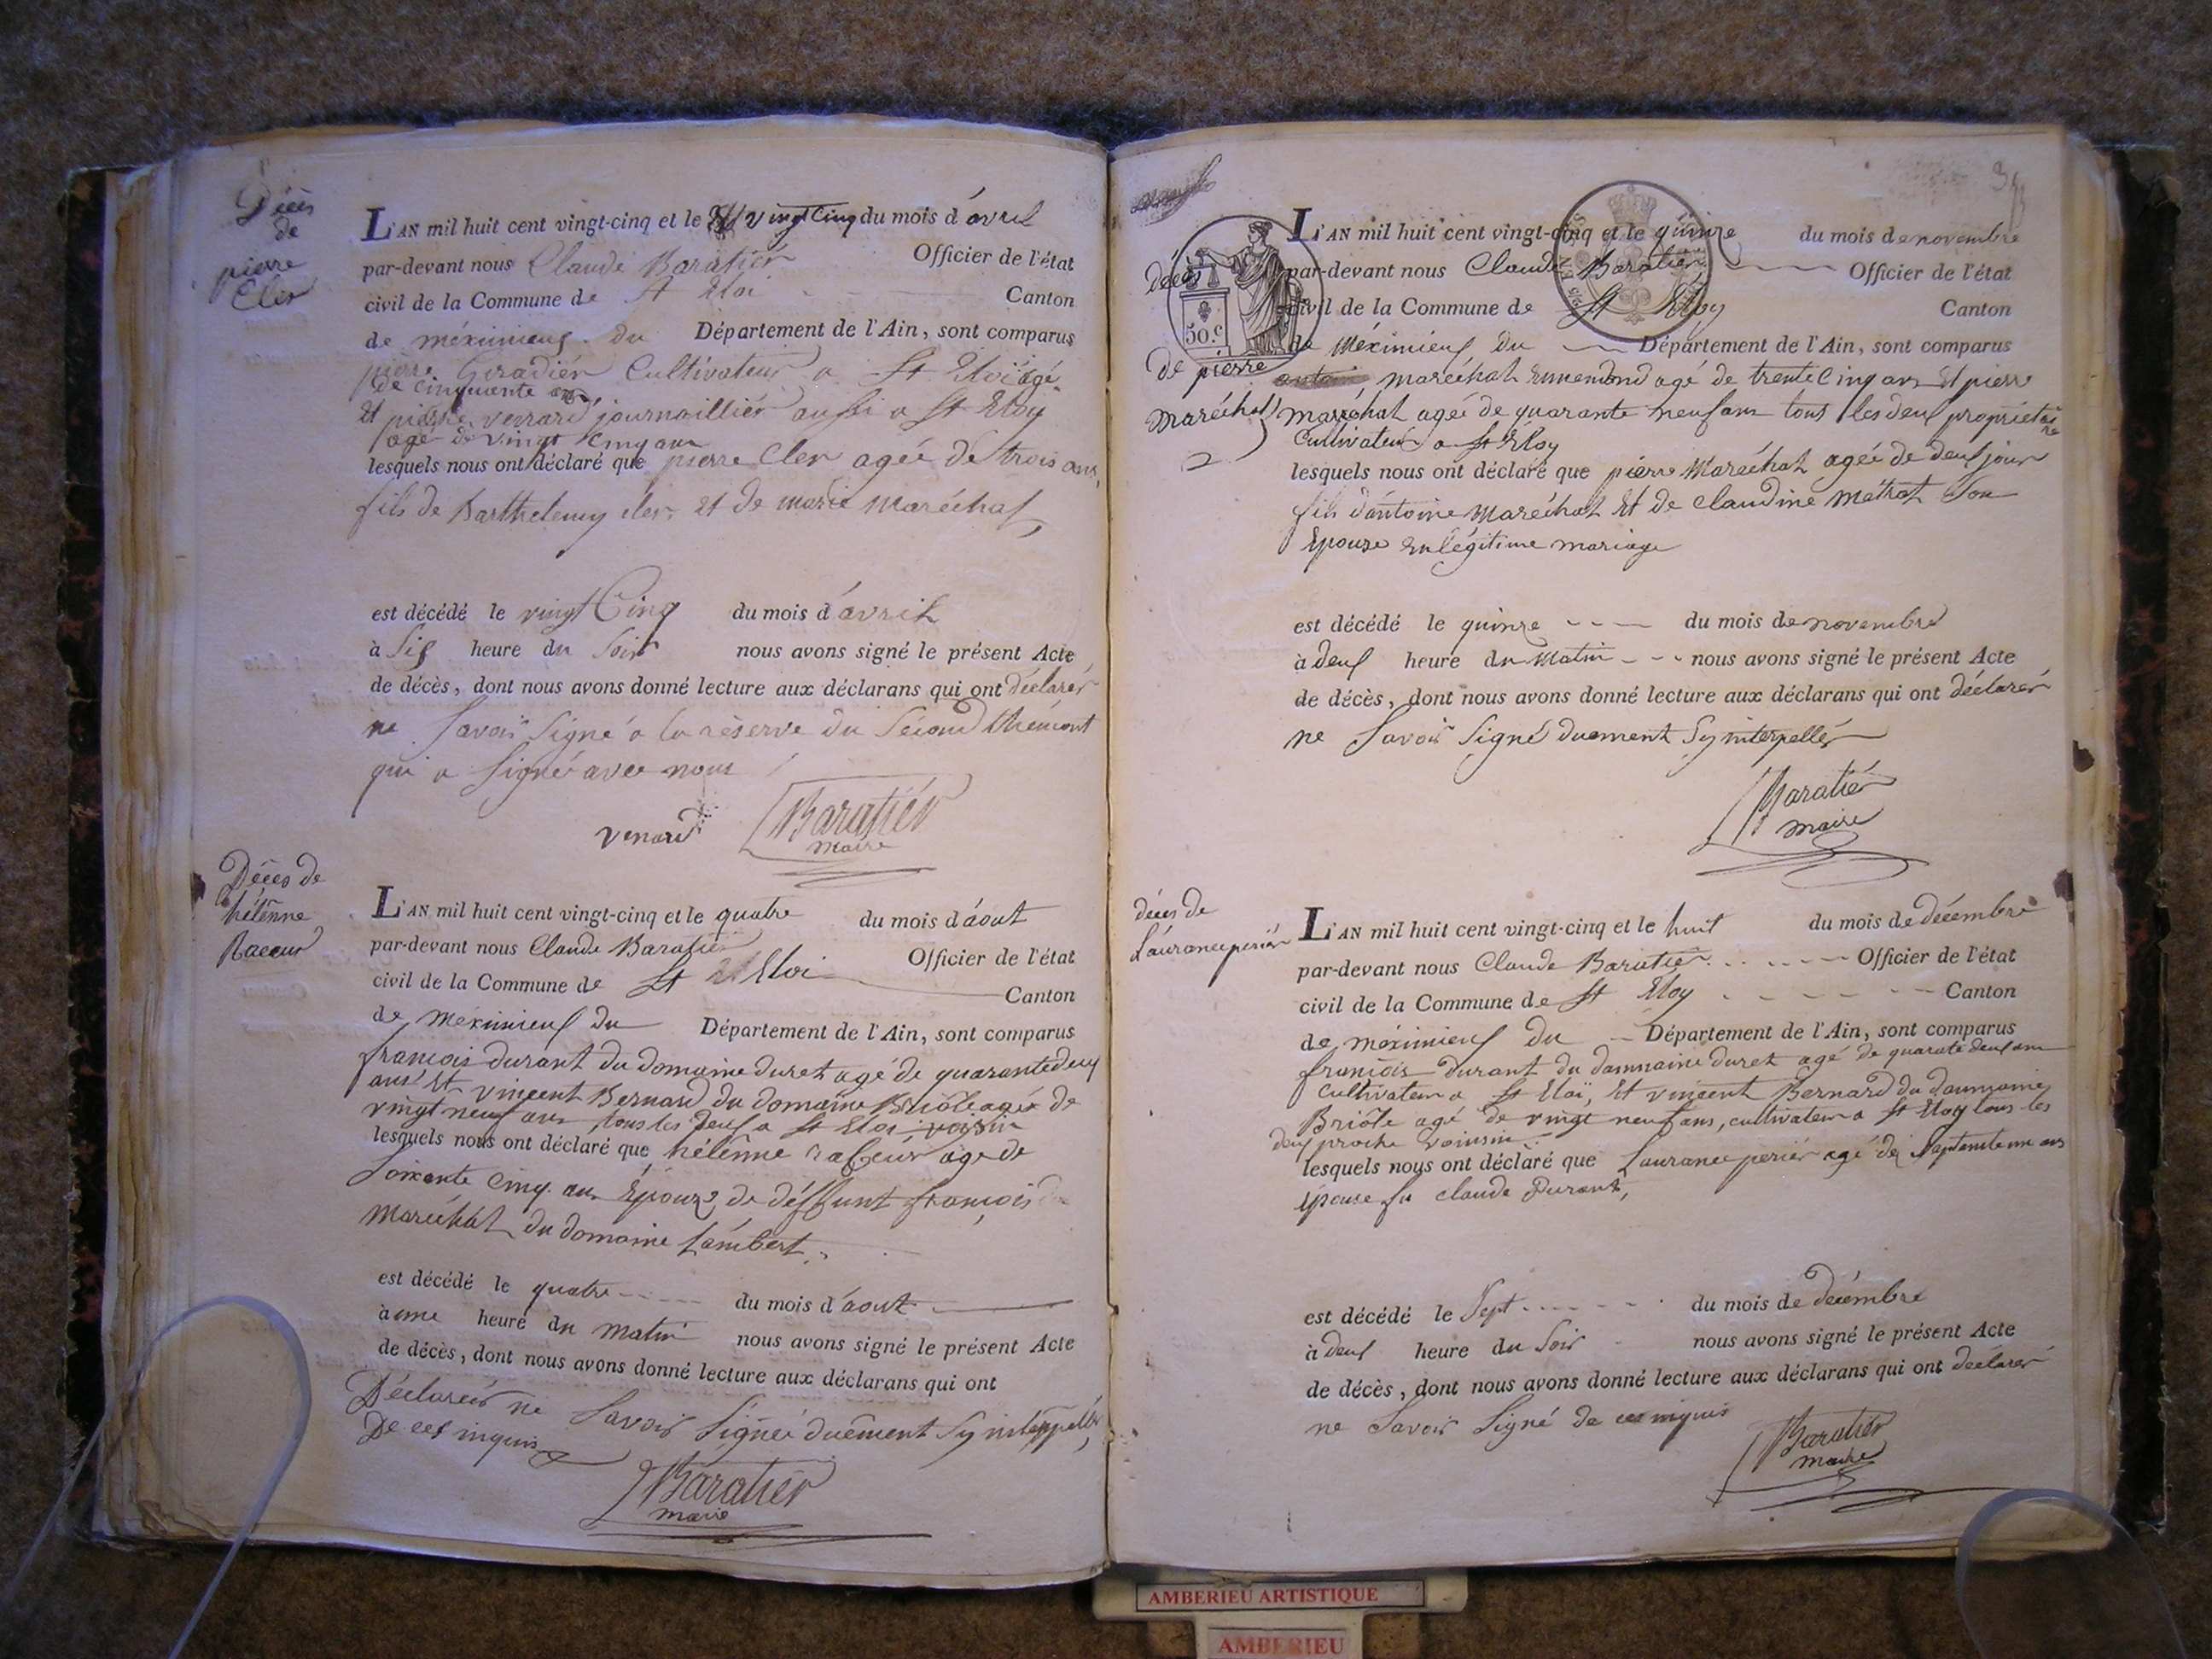 Décès
de
pierre
Cler
L'AN mil huit cent vingt-cinq et le vingt Cinq du mois d'avril
par-devant nous Claude Baratiér Officier de l'état
civil de la Commune de St Eloi Canton
de méximieux du Département de l'Ain, sont comparus
pierre Cultivateur a St Eloi agé
de cinquante ans
Et pierre journaillier aussi a St Eloy
agé de vingt cinq ans
lesquels nous ont déclaré que pierre Cler agéé de trois ans,
fils de Barthelemy cler et de marie Maréchal
est décédé le vingt Cinq du mois d'avril
à Six heure du Soir nous avons signé le présent Acte
de décès, dont nous avons donné lecture aux déclarans qui ont déclarér
ne Savoir Signé a la réserve du Sécond
qui a Signé avec nous
venard Baratiér
maire
Décès de
hélènne
L'AN mil huit cent vingt-cinq et le quatre du mois d'aout
par-devant nous Claude Baratiér Officier de l'état
civil de la Commune de St Eloi Canton
de meximieux du Département de l'Ain, sont comparus
francois durant du domaine duret agé de quarante deux
ans Et vincent Bernard du domaine Briôle agér de
vingt neuf ans, tous les deux a St Eloi voisin
lesquels nous ont déclaré que hélènne agé de
Soixante cinq ans Epouze de déffunt françois
Maréchal du domaine Lambert
est décédé le quatre du mois d'aout
à une heure du matin nous avons signé le présent Acte
de décès, dont nous avons donné lecture aux déclarans qui ont
Déclarér ne Savoir Signéé duement Sy intérppellér
De ces inquis
Baratiér
maire
50.c
décès
de pierre
maréchal
L'AN mil huit cent vingt-cinq et le quinze du mois de novembre
par-devant nous Claude Baratiér Officier de l'état
civil de la Commune de St Eloy Canton
de Méximieux du Département de l'Ain, sont comparus
maréchal agé de trente Cinq ans Et pierre
maréchal agéé de quarante neuf ans tous les deux propriétaire
Cultivateur a St Eloy
lesquels nous ont déclaré que pierre Maréchal agéé de deux jour
fils d'antoine Maréchal Et de Claudine Son
Epouze En légitime mariage
est décédé le quinze du mois de novembre
à deux heure du Matin nous avons signé le présent Acte
de décès, dont nous avons donné lecture aux déclarans qui ont déclarér
ne Savoir Signé duement Sy interpellér
Baratiér
maire
décès de
Lauranceperiér
L'AN mil huit cent vingt-cinq et le huit du mois de décembre
par-devant nous Claude Baratiér Officier de l'état
civil de la Commune de St Eloy Canton
de méximieux du Département de l'Ain, sont comparus
françois durant du dammaine duret agé de quarate deux ans
Cultivateur a St Eloi, Et vincent Bernard du dammaine
Briôle agé de vingt neuf ans, cultivateur a St Eloy tous les
deux proche
lesquels nous ont déclaré que Laurance periér agé de ans
épouse fu claude Durant,
est décédé le Sept du mois de décembre
à deux heure du Soir nous avons signé le présent Acte
de décès, dont nous avons donné lecture aux déclarans qui ont déclarér
ne Savoir Signé de ces inquis
Baratiér
maire
AMBERIEU ARTISTIQUE
AMBERIEU